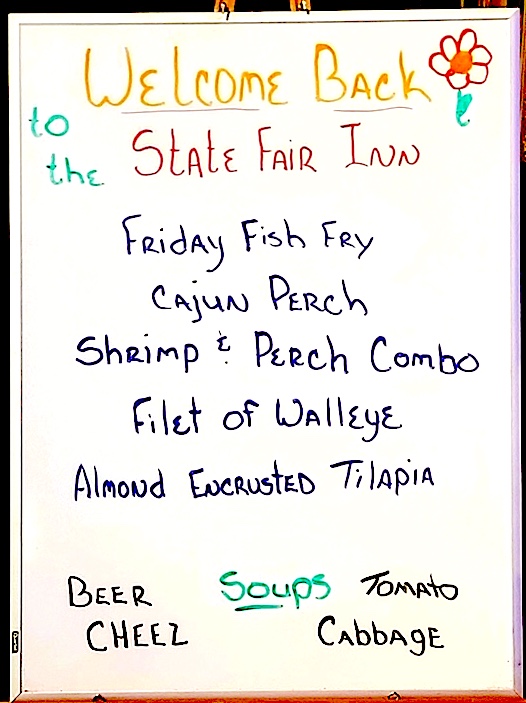 WELCOME BACK
to the STATE FAIR INN
FRIDAY FISH FRY
CAJUN PERCH
SHRIMP & PERCH COMBO
FILET OF WALLEYE
ALMOND ENCRUSTED TILAPIA
Soups
BEER CHEEZ
TOMATO CABBAGE